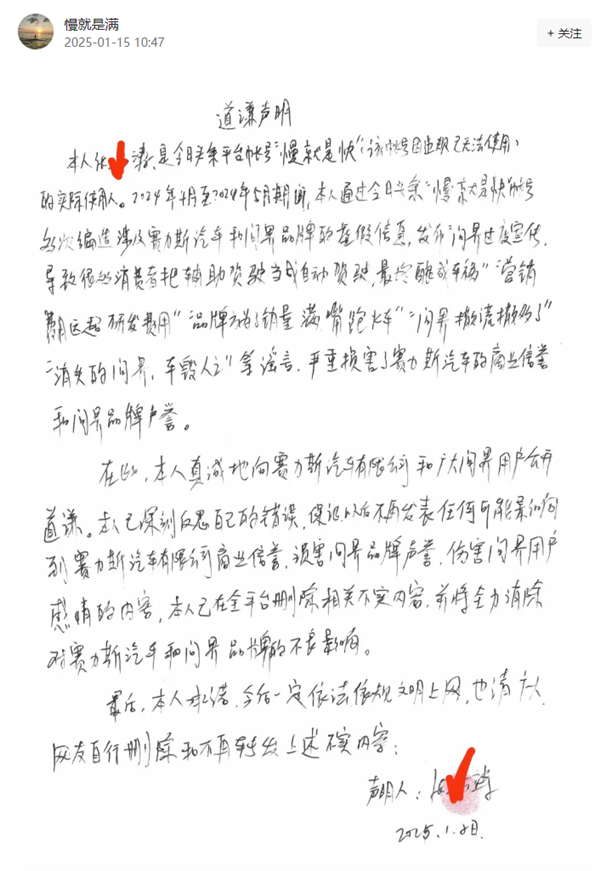 慢就是满
2025-01-15 10:47
+ 关注
道谦声明
本人 涛,是今日头条平台帐号"慢就是快"(该帐号因违规已无法使用)
的实际使用人。2024年4月至2024年5月期间,本人通过今日头条"慢就是快"帐号
多次编造涉及赛力斯汽车和问界品牌的虚假信息,发布"问界过度宣传,
导致很多消费者把辅助驾驶当成自动驾驶,最终酿成车祸""营销
费用远超研发费用""品牌方为了销量满嘴跑火车""问界撤流撤多了"
"消失的问界,车毁人亡"等谣言,严重损害了赛力斯汽车的商业信誉
和问界品牌声誉。
在此,本人真诚地向赛力斯汽车有限公司和广大问界用户公开
道谦。本人已深刻反思自己的错误,保证以后不再发表任何可能影响
到赛力斯汽车有限公司商业信誉、损害问界品牌声誉、伤害问界用户
感情的内容,本人已在全平台删除相关不实内容,并将全力消除
对赛力斯汽车和问界品牌的不良影响。
最后,本人承诺,今后一定依法依规文明上网,也请广大
网友自行删除和不再转发上述不实内容;
声明人:
2025.1. 日.